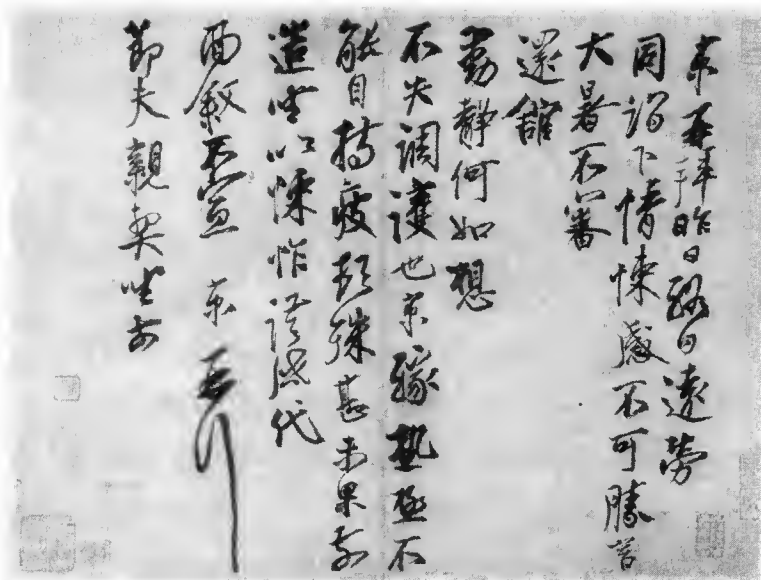 京再拜昨日終日遠勞
同詣下情悚感不可勝言
大暑不審
還館
動靜何如想
不失調護也京緣熱極不
能自持疲頓殊甚未果前
造坐以悚怍謹啟代
面敘不宣 京再拜
節夫親契坐前